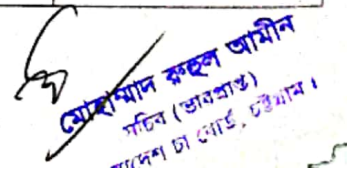 মোহাম্মাদ রুহুল আমীন
সচিব (ভারপ্রাপ্ত)
চা বোর্ড, চট্টগ্রাম।